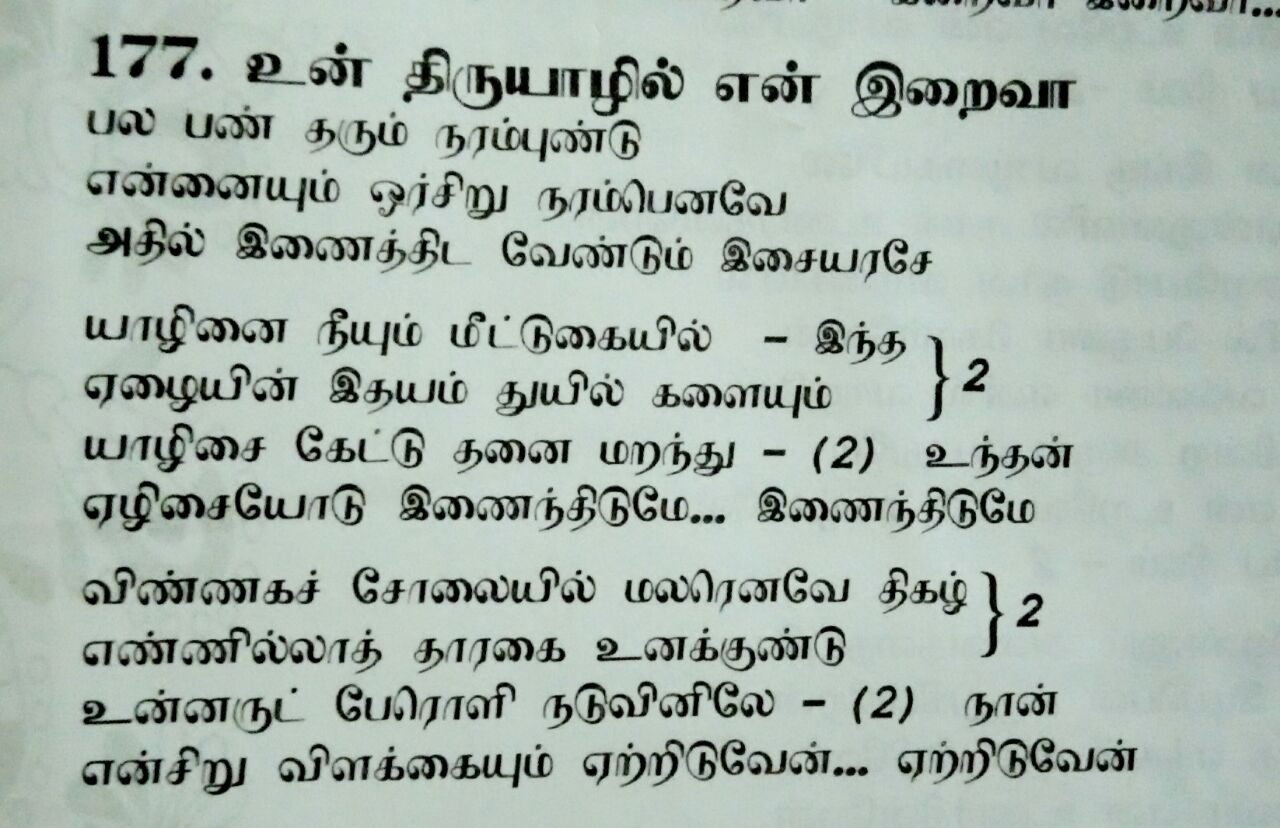 177. உன் திருயாழில் என் இறைவா
பல பண் தரும் நரம்புண்டு
என்னையும் ஓர்சிறு நரம்பெனவே
அதில் இணைத்திட வேண்டும் இசையரசே
யாழினை நீயும் மீட்டுகையில் – இந்த
ஏழையின் இதயம் துயில் களையும் } 2
யாழிசை கேட்டு தனை மறந்து – (2) உந்தன்
ஏழிசையோடு இணைந்திடுமே... இணைந்திடுமே
விண்ணகச் சோலையில் மலரெனவே திகழ்
எண்ணில்லாத் தாரகை உனக்குண்டு } 2
உன்னருட் பேரொளி நடுவினிலே – (2) நான்
என்சிறு விளக்கையும் ஏற்றிடுவேன்... ஏற்றிடுவேன்